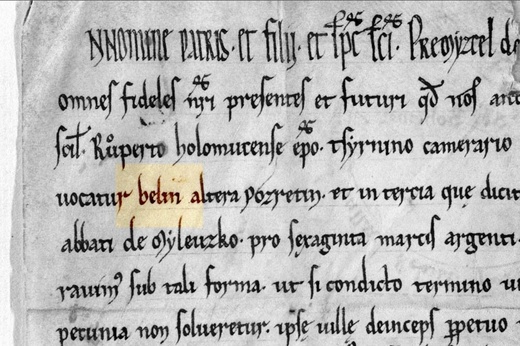 NNOMINE PATRIS· et filij· et sp̄c s̄ci· Premyzcel d
omnes fideles n̄ri presentes et futuri qđ nos
scil· Ruͦperto holomucense ep̄o· tsyrnino camerario
uocatur belin altera pozretin· et in tercia quę dicit
abbati de Myleuzko· pro sęxaginta marcis argenti·
sub tali forma· ut si condicto termino
petunia non solueretur· ipsę uillę deinceps ꝑpetuo